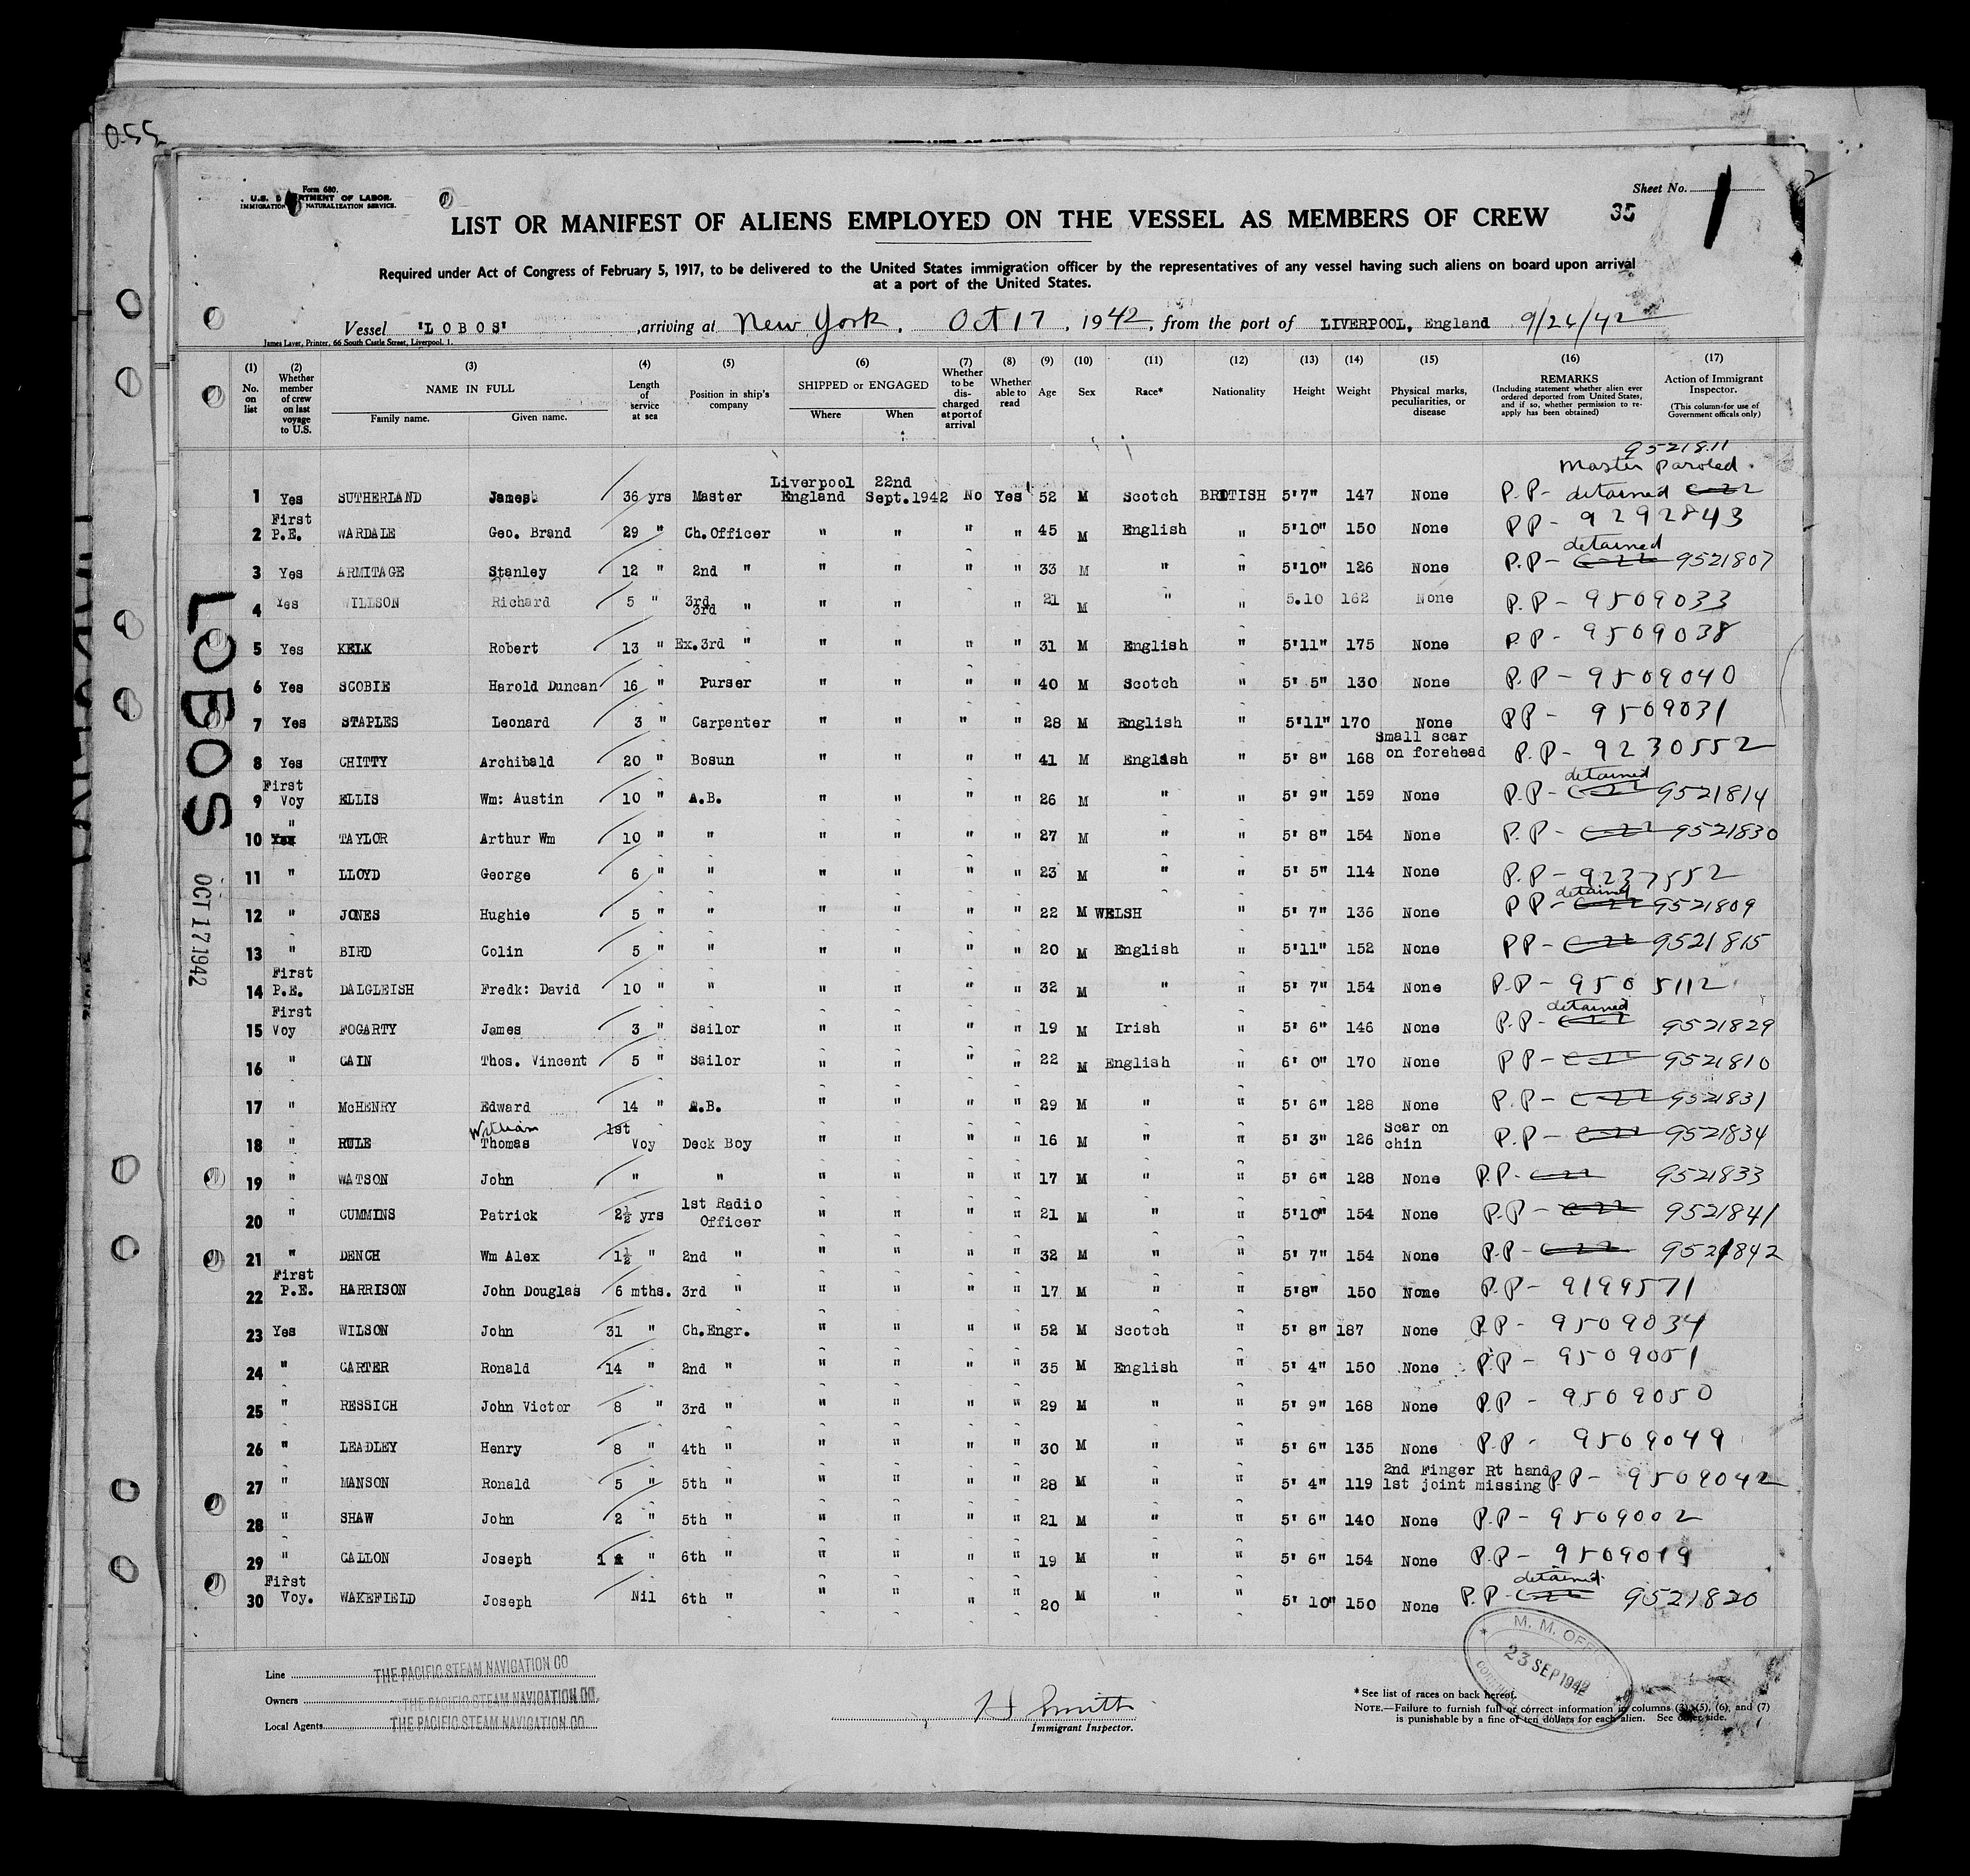 055
Form 680.
U.S. DEPARTMENT OF LABOR.
IMMIGRATION NATURALIZATION SERVICE.
Sheet No. 1
35
LIST OR MANIFEST OF ALIENS EMPLOYED ON THE VESSEL AS MEMBERS OF CREW
Required under Act of Congress of February 5, 1917, to be delivered to the United States immigration officer by the representatives of any vessel having such aliens on board upon arrival
at a port of the United States.
Vessel 'LOBOS' , arriving at New York, Oct 17, 1942, from the port of LIVERPOOL, England 9/26/42
James Laver, Printer, 66 South Castle Street, Liverpool, 1.
(1) No. on list (2) Whether member of crew on last voyage to U.S. (3) NAME IN FULL Family name. Given name. (4) Length of service at sea (5) Position in ship's company (6) SHIPPED or ENGAGED Where When (7) Whether to be discharged at port of arrival (8) Whether able to read (9) Age (10) Sex (11) Race* (12) Nationality (13) Height (14) Weight (15) Physical marks, peculiarities, or disease (16) REMARKS (Including statement whether alien ever ordered deported from United States, and if so, whether permission to re-apply has been obtained) (17) Action of Immigrant Inspector. (This column for use of Government officals only)
9521811
Master paroled.
1 Yes SUTHERLAND James 36 yrs Master Liverpool England 22nd Sept.1942 No Yes 52 M Scotch BRITISH 5'7" 147 None P.P- detained C-22
2 First P.E. WARDALE Geo. Brand 29 " Ch.Officer " " " " 45 M English " 5'10" 150 None PP- 9292843
3 Yes ARMITAGE Stanley 12 " 2nd " " " " " 33 M " " 5'10" 126 None P.P- detained C-22 9521807
4 Yes WILLSON Richard 5 " 3rd 3rd " " " " 21 M " " 5.10 162 None P.P- 9509033
5 Yes KELK Robert 13 " Ex.3rd " " " " " 31 M English " 5'11" 175 None P.P- 9509038
6 Yes SCOBIE Harold Duncan 16 " Purser " " " " 40 M Scotch " 5' 5" 130 None P.P- 9509040
7 Yes STAPLES Leonard 3 " Carpenter " " " " 28 M English " 5'11" 170 None PP- 9509031
8 Yes CHITTY Archibald 20 " Bosun " " " " 41 M English " 5' 8" 168 Small scar on forehead P.P- 9230552
9 First Voy ELLIS Wm: Austin 10 " A.B. " " " " 26 M " " 5' 9" 159 None P.P- detained C-22 9521814
10 Yes " TAYLOR Arthur Wm 10 " " " " " " 27 M " " 5' 8" 154 None P.P- C-22 9521830
11 " LLOYD George 6 " " " " " " 23 M " " 5' 5" 114 None P.P- 9237552
12 " JONES Hughie 5 " " " " " " 22 M WELSH " 5' 7" 136 None PP- detained C-22 9521809
13 " BIRD Colin 5 " " " " " " 20 M English " 5'11" 152 None PP- C-22 9521815
14 First P.E. DALGLEISH Fredk: David 10 " " " " " " 32 M " " 5' 7" 154 None P.P- 9505112
15 First Voy FOGARTY James 3 " Sailor " " " " 19 M Irish " 5' 6" 146 None P.P- detained C-22 9521829
16 " CAIN Thos. Vincent 5 " Sailor " " " " 22 M English " 6' 0" 170 None PP- C-22 9521810
17 " McHENRY Edward 14 " A.B. " " " " 29 M " " 5' 6" 128 None P.P- C-22 9521831
18 " RULE William Thomas 1st Voy Deck Boy " " " " 16 M " " 5' 3" 126 Scar on chin P.P- C-22 9521834
19 " WATSON John " " " " " " 17 M " " 5' 6" 128 None P.P- C-22 9521833
20 " CUMMINS Patrick 2½ yrs 1st Radio Officer " " " " 21 M " " 5'10" 154 None P.P- C-22 9521841
21 " DENCH Wm Alex 1½ " 2nd " " " " " 32 M " " 5' 7" 154 None P.P- C-22 9521842
22 First P.E. HARRISON John Douglas 6 mths. 3rd " " " " " 17 M " " 5'8" 150 None P.P- 9199571
23 Yes WILSON John 31 " Ch.Engr. " " " " 52 M Scotch " 5' 8" 187 None P.P- 9509034
24 " CARTER Ronald 14 " 2nd " " " " " 35 M English " 5' 4" 150 None P.P- 9509051
25 " RESSICH John Victor 8 " 3rd " " " " " 29 M " " 5' 9" 168 None P.P- 9509050
26 " LEADLEY Henry 8 " 4th " " " " " 30 M " " 5' 6" 135 None P.P- 9509049
27 " MANSON Ronald 5 " 5th " " " " " 28 M " " 5' 4" 119 2nd Finger Rt hand 1st joint missing P.P- 9509042
28 " SHAW John 2 " 5th " " " " " 21 M " " 5' 6" 140 None P.P- 9509002
29 " CALLON Joseph 1 " 6th " " " " " 19 M " " 5' 6" 154 None P.P- 9509019
30 First Voy. WAKEFIELD Joseph Nil 6th " " " " " 20 M " " 5' 10" 150 None P.P- detained C-22 9521820
LOBOS
OCT 17 1942
Line THE PACIFIC STEAM NAVIGATION CO
Owners THE PACIFIC STEAM NAVIGATION CO.
Local Agents THE PACIFIC STEAM NAVIGATION CO
H Smith
Immigrant Inspector.
M. M. OFFICE
23 SEP 1942
* See list of races on back hereof.
NOTE.—Failure to furnish full or correct information in columns (3), (5), (6), and (7)
is punishable by a fine of ten dollars for each alien. See other side.